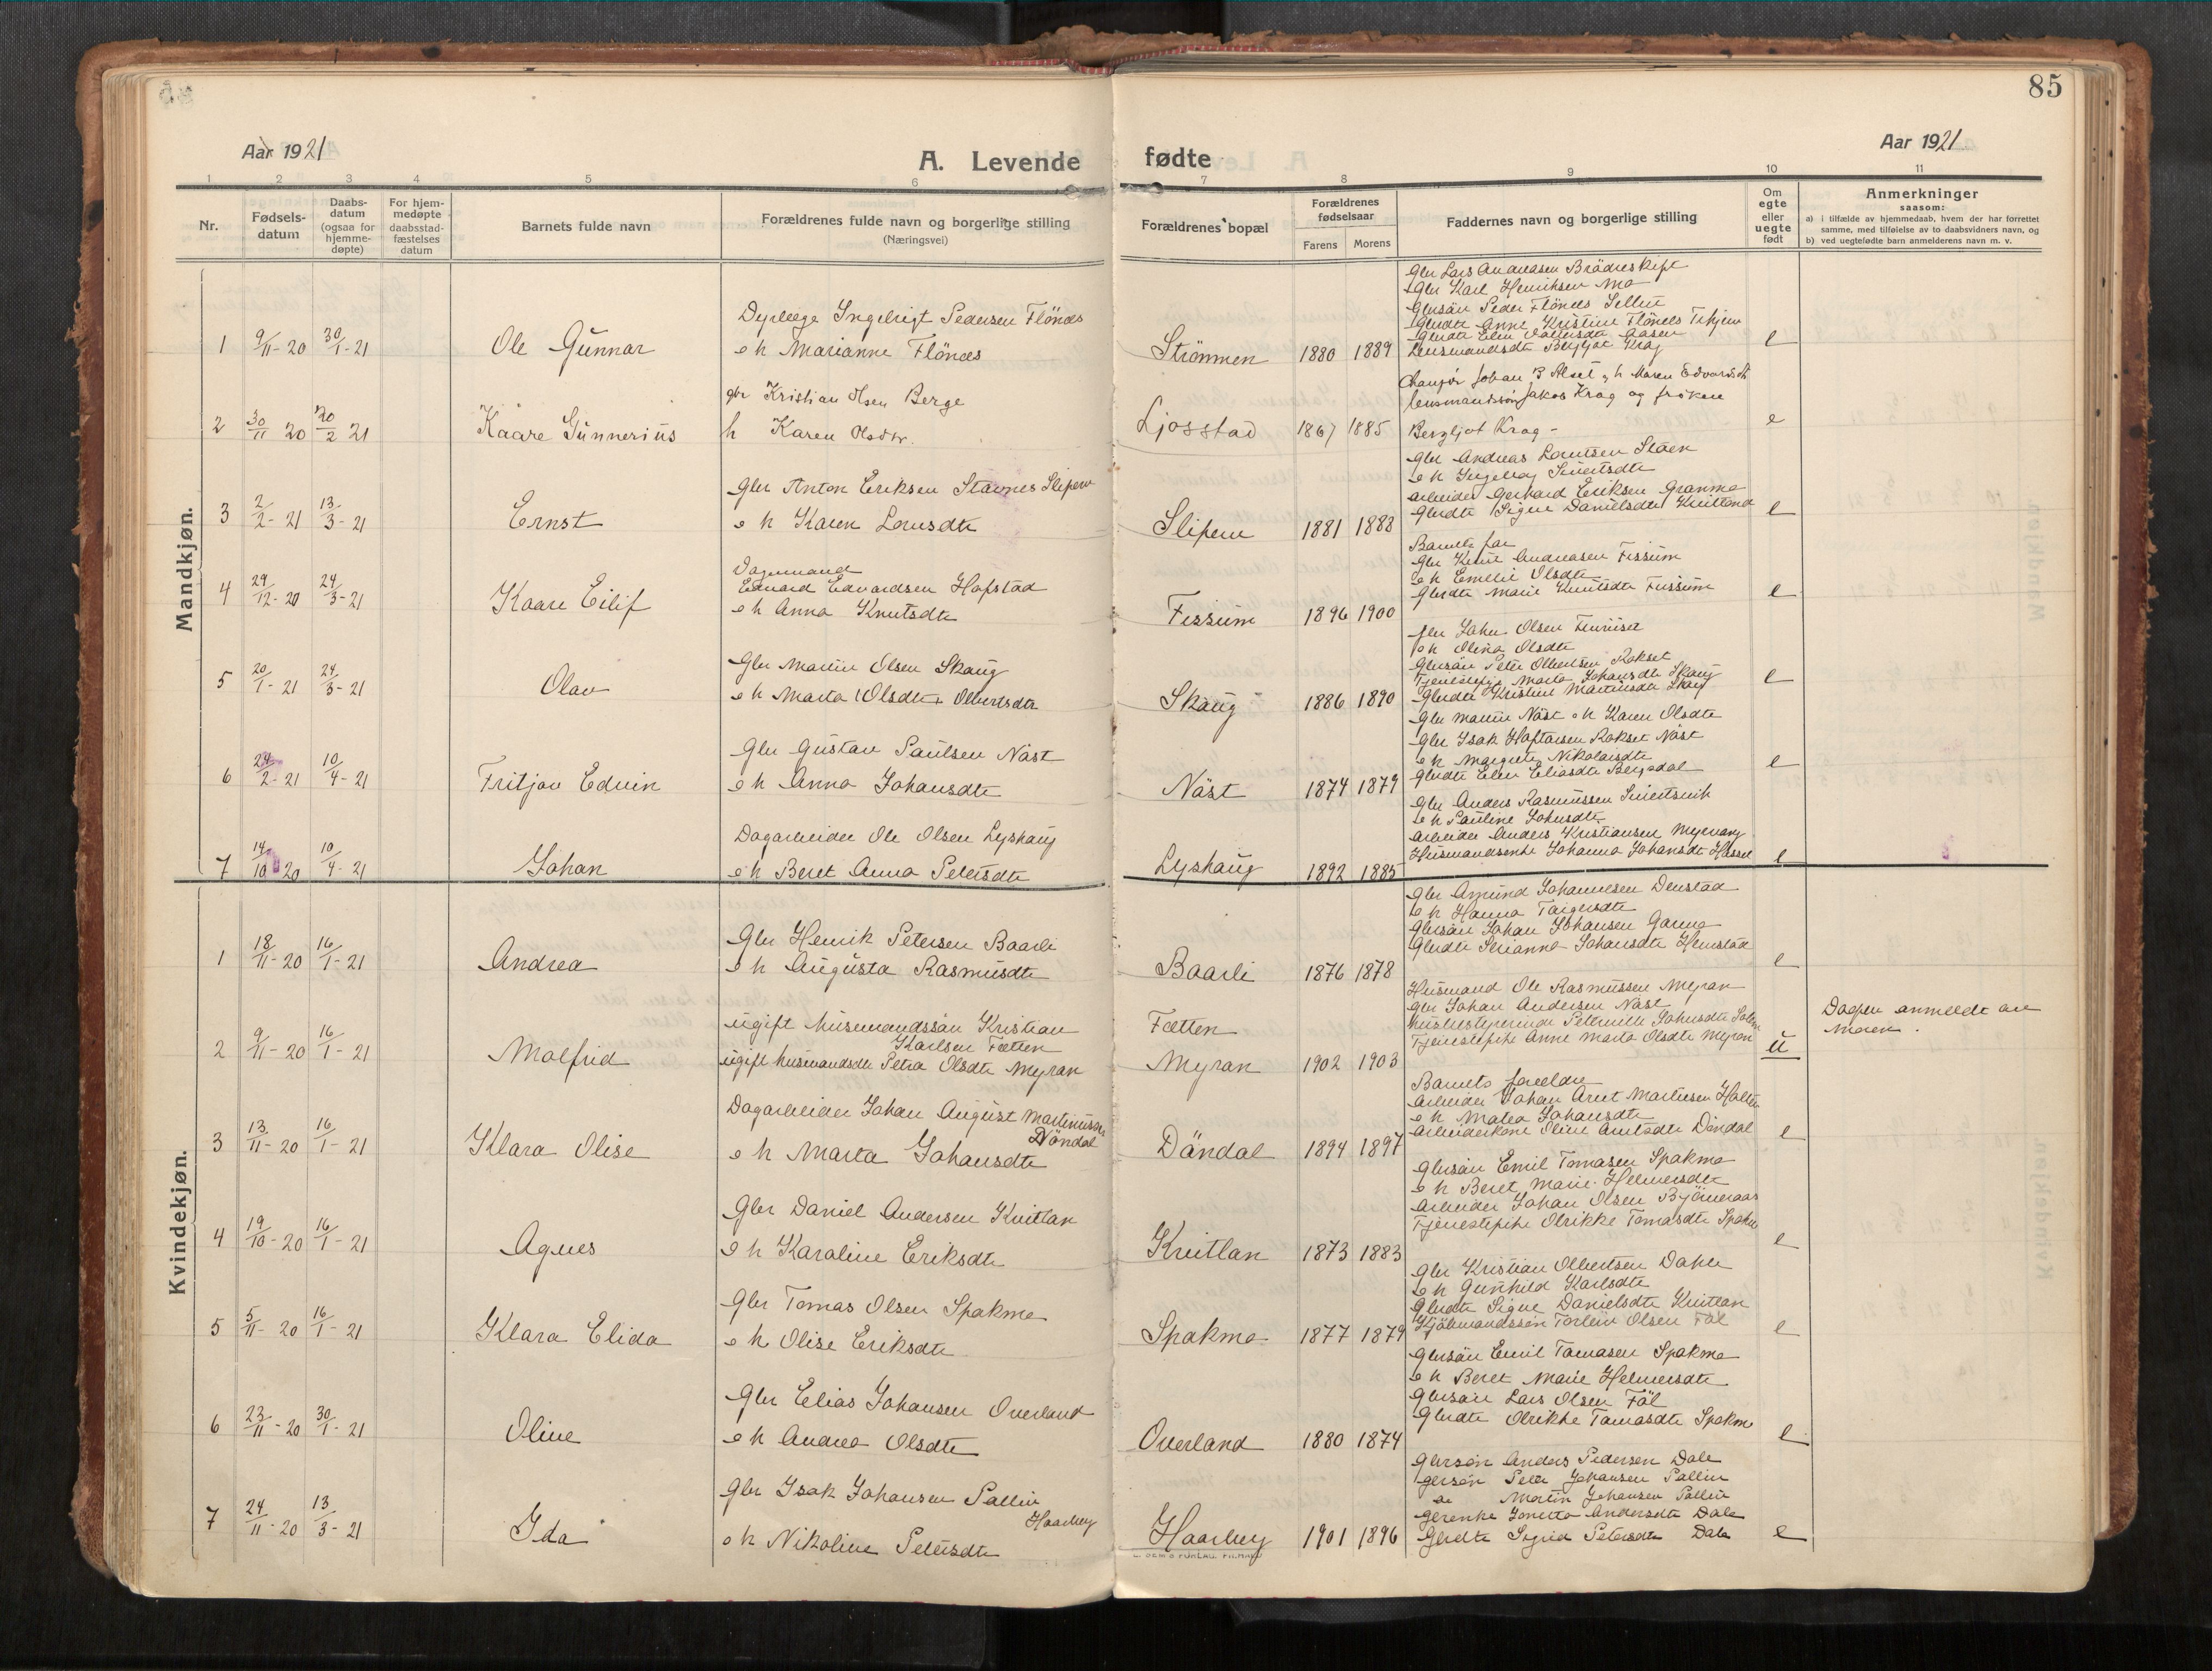 85
Aar 1921
A. Levende fødte
Aar 1921
1 2 3 4 5 6 7 8 9 10 11
Nr.
Fødsels-
datum
Daabs-
datum
(ogsaa for
hjemme-
døpte)
For hjem-
medøpte
daabsstad-
fæstelses
datum
Barnets fulde navn
Forældrenes fulde navn og borgerlige stilling
(Næringsvei)
Forældrenes bopæl
Forældrenes
fødselsaar
Farens Morens
Faddernes navn og borgerlige stilling
Om
egte
eller
uegte
født
Anmerkninger
saasom:
a) i tilfælde av hjemmedaab, hvem der har forrettet
samme, med tilføielse av to daabsvidners navn, og
b) ved uegtefødte barn anmelderens navn m. v.
Mandkjøn.
1 9/11-20 30/1-21 Ole Gunnar
Dyrlæge Ingebrigt Pedersen Flönes
o h Marianne Flönes
Strömmen 1880 1889
Gbr Lars Andreasen Brödreskift
Gbr Karl Henriksen Mo
Gbrsön Peder Flönes Selbu
Gbrdtr Anne Kristine Flönes
Gbrdtr Elen Aasen
Lensmandsdtr Bergljot Krag
e
2 30/11 20 20/2 21 Kaare Gunnerius
gbr Kristian Olsen Berge
h Karen Olsdtr.
Ljosstad 1867 1885
Johan B Alset o h Maren Edvardsdtr
lensmandssön Jakob Krag og fröken
Bergljot Krag -
e
3 2/2-21 13/3-21 Ernst
Gbr Anton Eriksen Stavnes Slipern
o h Karen Larsdtr
Slipern 1881 1888
Gbr Andreas Lauritsen Staen
o h Ingeborg Sivertsdtr
arbeider Gerhard Eriksen Granmo
Gbrdtr Signe Danielsdtr Kvitland
e
4 29/12-20 24/3-21 Kaare Eilif
Dagmand
Edvard Edvardsen Hofstad
o h Anna Knutsdtr
Fissum 1896 1900
Barnets far
Gbr Knut Andreasen Fissum
o h Emelie Olsdtr
Gbrdtr Marie Knutsdtr Fissum
e
5 20/1-21 24/3-21 Olav
Gbr Martin Olsen Skaug
o h Marta (Olsdtr) Olbertsdtr
Skaug 1886 1890
Gbr Johan Olsen
o h Olina Olsdtr
Gbrsön Peter Olbertsen Rokset
Tjenestepige Marta Johansdtr Skaug
Gbrdtr Kristine Martinsdtr Skaug
e
6 24/2-21 10/4-21 Fritjov Edvin
Gbr Gustav Paulsen Näst
o h Anna Johansdtr
Näst 1874 1879
Gbr Martin Näst o h Karen Olsdtr
Gbr Isak Hoftasen Rokset Näst
o h Margrete Nikolaisdtr
Gbrdtr Elen Eliasdtr Bergsdal
e
7 14/10 20 10/4-21 Johan
Dagarbeider Ole Olsen Lyshaug
o h Beret Anna Petersdtr
Lyshaug 1892 1885
Gbr Anders Rasmussen Sivertsvik
o h Pauline Johnsdtr
arbeider Anders Kristiansen Myrvang
Husmandsenke Johanna Johansdtr Hassel
e
Kvindekjøn.
1 18/11-20 16/1-21 Andrea
Gbr Henrik Petersen Baarli
o h Augusta Rasmusdtr
Baarli 1876 1878
Gbr Amund Johannesen Denstad
o h Hanna Torgersdtr
Gbrsön Johan Johansen Garmo
Gbrdtr Serianna Johansdtr Hemstad
e
2 9/11-20 16/1-21 Molfrid
ugift husmandssön Kristian
Karlsen Fætten
ugift husmandsdtr Petra Olsdtr Myran
Fætten
Myran 1902 1903
Husmand Ole Rasmussen Myran
Gbr Johan Andersen Näst
husbestyrerinde Peternille Johnsdtr
Tjenestepike Anne Marta Olsdtr Myran
u
Daapen anmeldt av
Moren.
3 13/11-20 16/1-21 Klara Olise
Dagarbeider Johan August Martinussen
Döndal
o h Marta Johansdtr
Döndal 1894 1897
Barnets foreldre
Arbeider Johan Arnt Martinsen Holten
o h Matea Johansdtr
arbeiderkone Oline Arntsdtr Döndal
e
4 19/10-20 16/1-21 Agnes
Gbr Daniel Andersen Kvitlan
o h Karoline Eriksdtr
Kvitlan 1873 1883
Gbrsön Emil Tomasen Spakmo
o h Beret Marie Helmersdtr
Arbeider Johan Olsen Björneraas
Tjenestepike Olrikke Tomasdtr Spakm
e
5 5/11-20 16/1-21 Klara Elida
Gbr Tomas Olsen Spakmo
o h Olise Eriksdtr
Spakmo 1877 1879
Gbr Kristian Olbertsen Dahle
o h Gunhild Karlsdtr
Gbrdtr Signe Danielsdtr Kvitlan
Kjöbmandssön Torleiv Olsen Föl
e
6 23/11-20 30/1-21 Oline
Gbr Elias Johansen Overland
o h Andrea Olsdtr
Overland 1880 1874
Gbrsön Emil Tomasen Spakmo
o h Beret Marie Helmersdtr
Gbrsön Lars Olsen Föl
Gbrdtr Olrikke Tomasdtr Spakmo
e
7 24/11-20 13/3-21 Ida
Gbr Isak Johansen Pallin
Haarberg
o h Nikoline Petersdtr
Haarberg 1901 1896
Gbrsön Anders Pedersen Dale
Gbrsön Peter Johansen Pallin
do Martin Johansen Pallin
Gbrenke Jonetta Andersdtr Dale
Gbrdtr Sigrid Petersdtr Dale
e